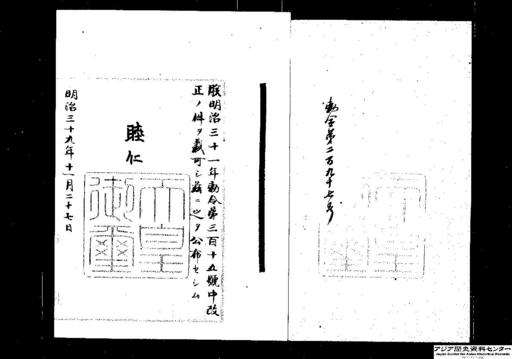 勅令第二百九十七号
朕明治三十一年勅令第三百十五號中改
正ノ件ヲ裁可シ茲ニ之ヲ公布セシム
睦仁
天皇
御璽
明治三十九年十一月二十七日
アジア歴史資料センター
Japan Center for Asian Historical Records